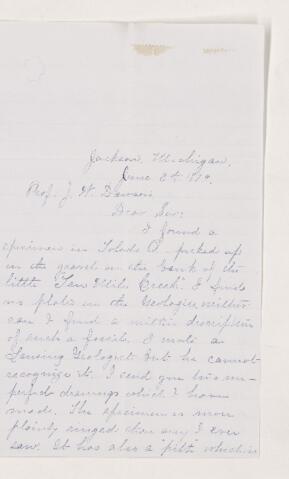 Jackson, Michigan.
June 8th 1879.
Prof. J. W. Dawson
Dear Sir:
I found a
specimen in Toledo O. picked up
in the gravel on the bank of the
little "Ten Mile Creek". I find
no plate in the Geologies neither
can I find a written description
of such a fossil. I wrote a
Lansing Geologist but he cannot
recognize it. I send you two im-
perfect drawings which I have
made. The specimen is more
plainly ringed than any I ever
saw. It has also a "pith" which is